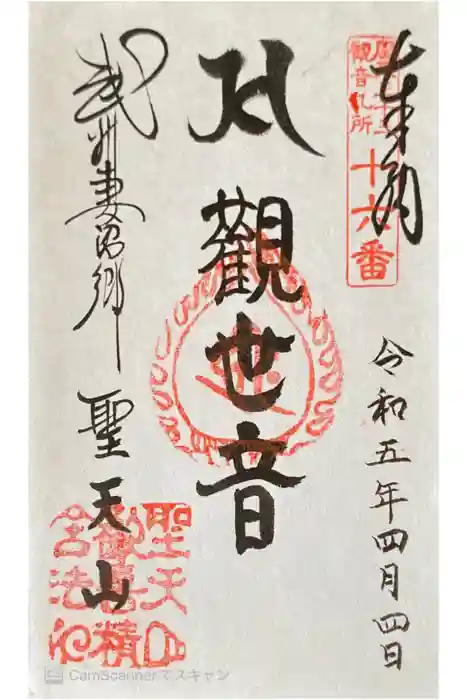 奉納
觀音札所
十六番
令和五年四月四日
觀世音
武州妻沼郷 聖天山
聖天山
歡喜精
舍法印
CamScannerでスキャン